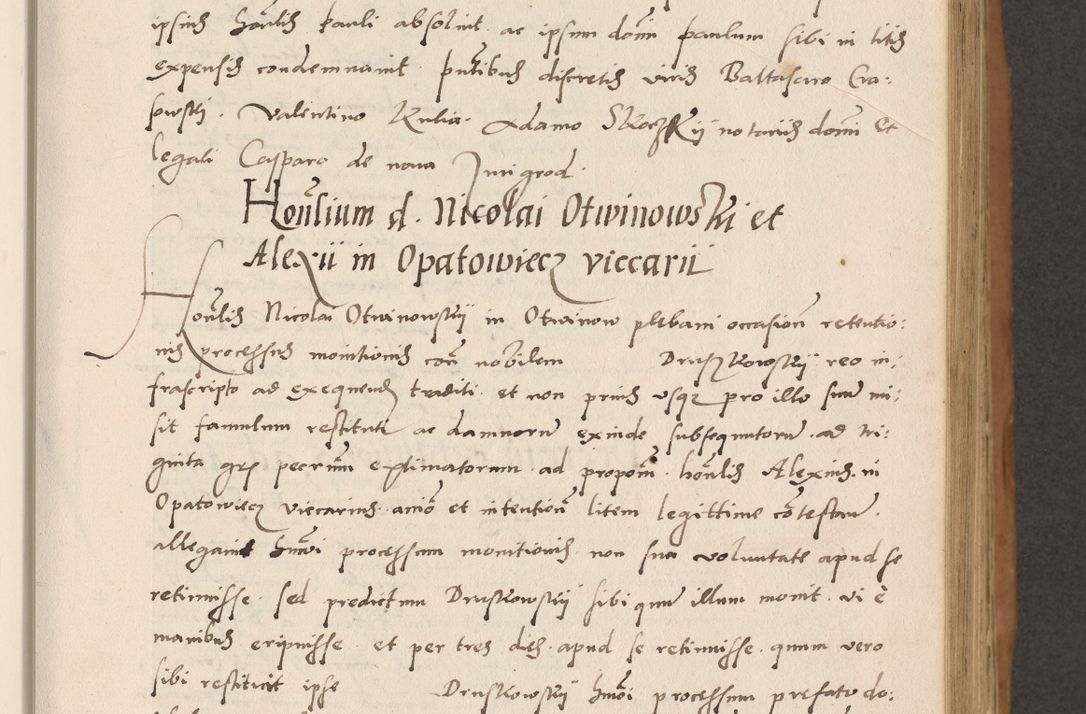 ipsius honlis Pauli absolvit ac ipsum dominum paulum sibi in litis
expensis condemnavit pntibus discretis viris Baltasaro Cra:
sowski. Valentino Kulia. Adamo notariis domini et
legati Casparo de nova
Honlium d. Nicolai Otwinowski et
Alexii in Opatowiecz viccarii
Honlis Nicolai Otwinowskij in Otwinow plebani occasione retentio:
nis processus monitionis coram nobilem Druszkowskij reo in:
frascripto ad exequendum traditi. et non prius usque pro illo suum mi:
sit famulum restituti ac damnorum exinde subsequutorum. ad tri:
ginta pecunium extimatorum. ad propositionem. honlis Alexius. in
Opatowiecz viccarius. animo et intentione litem legittime contestan.
allegavit huiusmodi processum monitionis. non sua voluntate apud se
retinuisse. sed predictum Druskowskij sibi illum monit. vi e
manibus eripuisse. et per tres dies apud se retinuisse. quum vero
sibi restituit ipse Druskowskij huiusmodi processum prefato do: